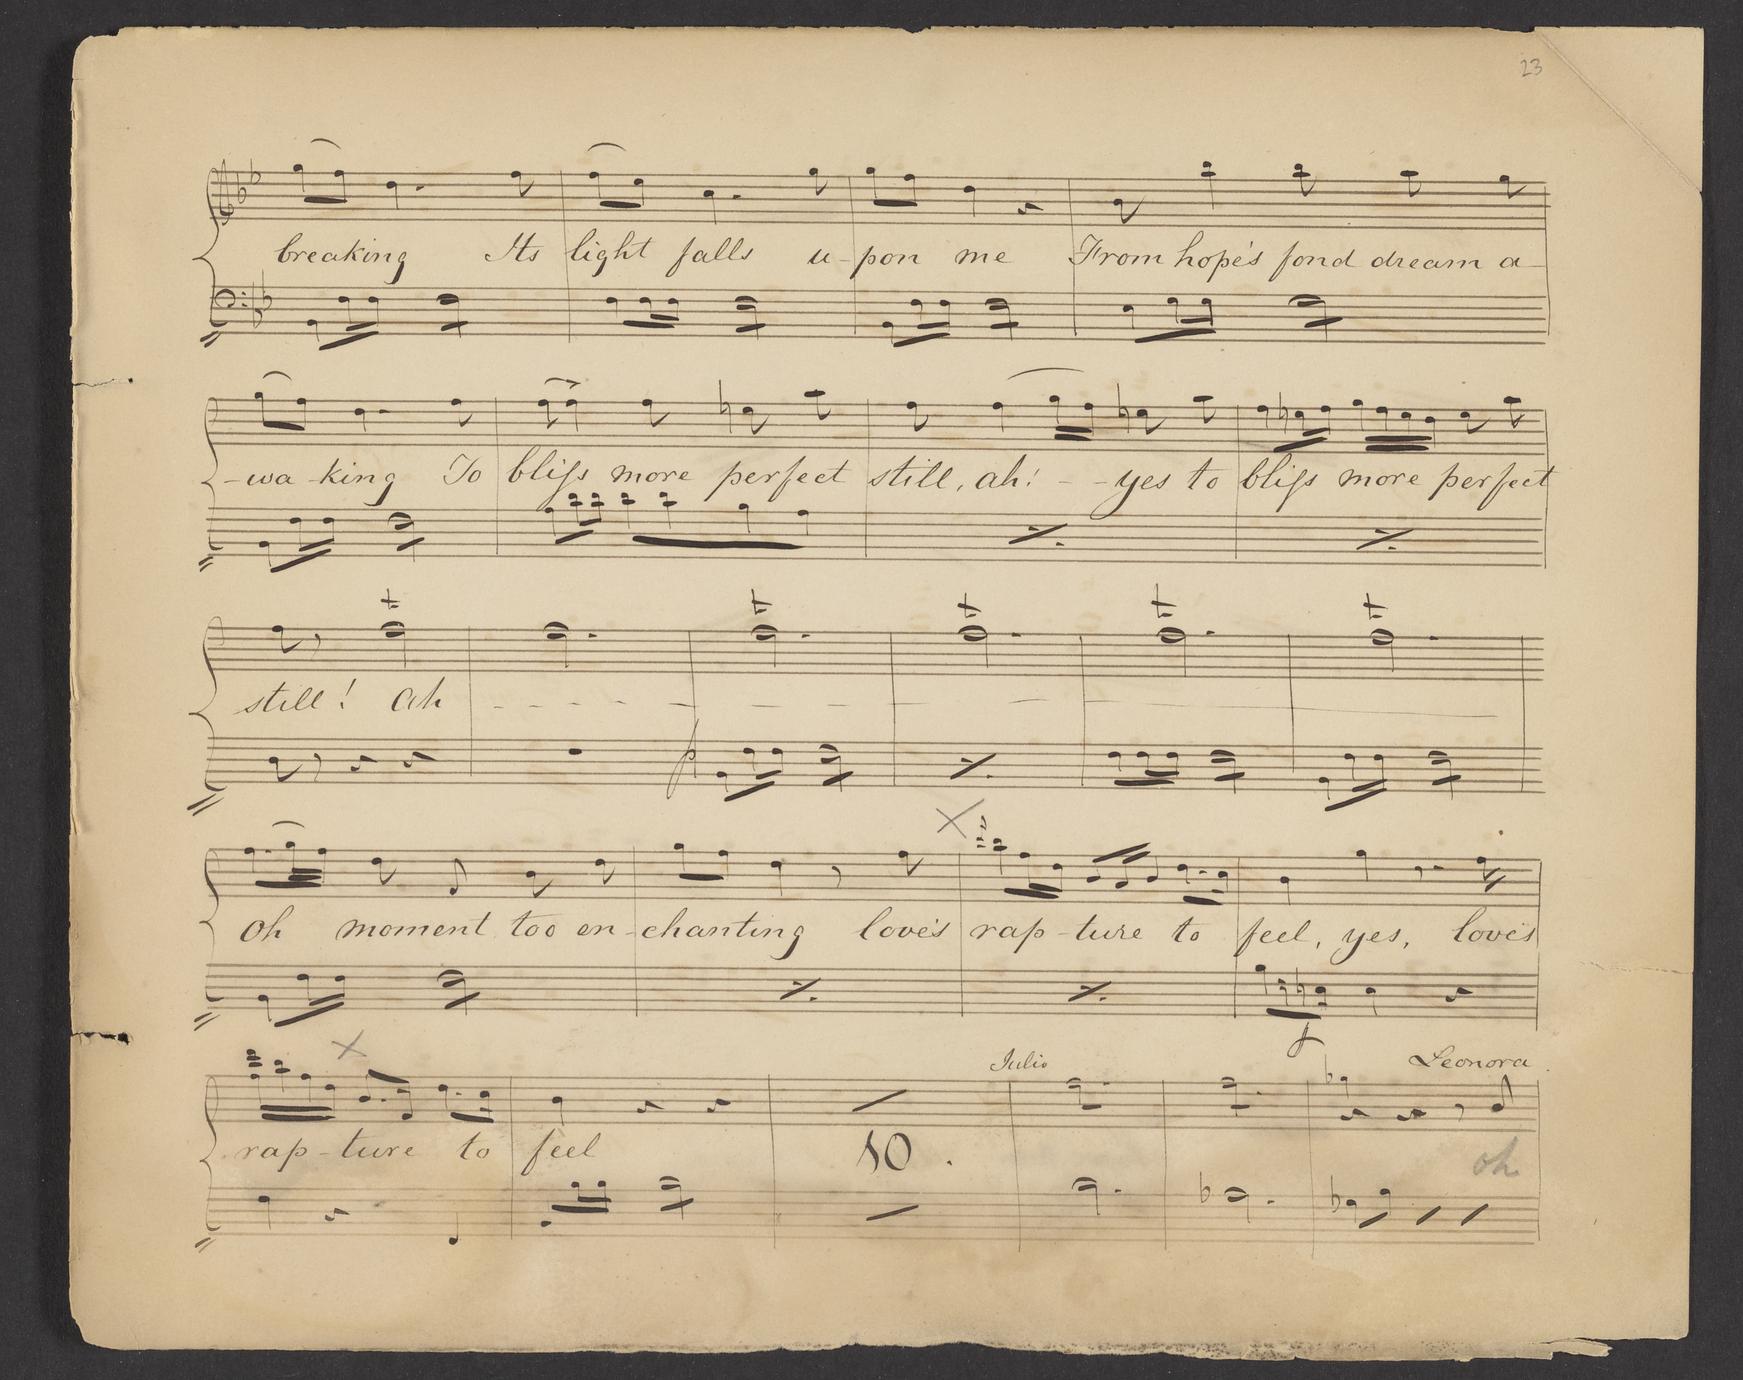 23
breaking Its light falls u-pon me From hope's fond dream a-
-wa-king To bliss more perfect still, ah! - - yes to bliss more perfect
still! ah - - - - - - - -
p
oh moment too en-chanting love's rap-ture to feel, yes, love's
f
Julio Leonora
rap-ture to feel 10. oh